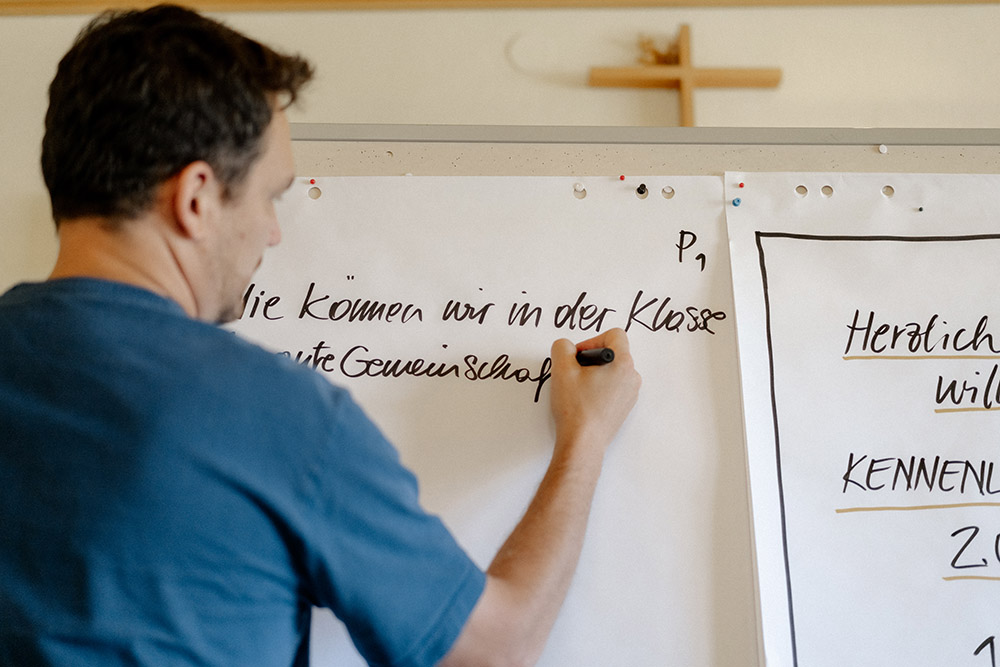 P1
Wie können wir in der Klasse
gute Gemeinschaf
Herzlich
will
KENNENL
20
1